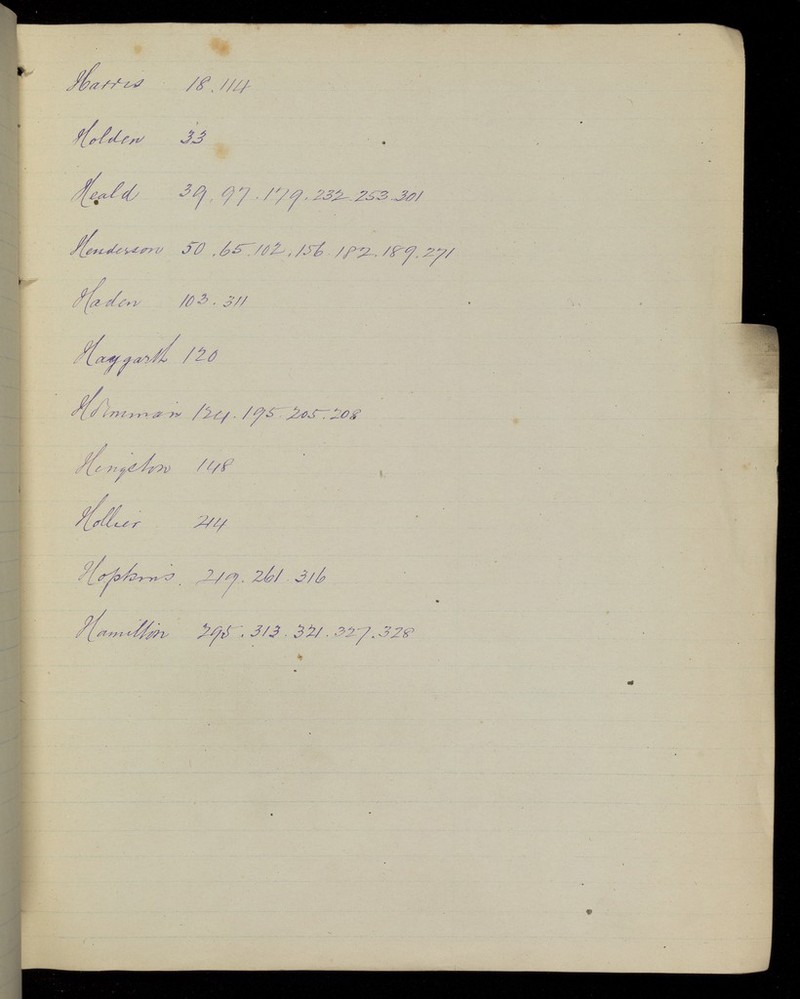 Harris 18.114
Holden 33
Heald 39.97.179.232.253.301
Henderson 50.65.102.156.182.189.271
Haden 103.311
Haygarth 120
Hornman 124.195.205.208
Hingston 148
Hollier 214
Hopkins. 219.261.316
Hamilton 295.313.321.327.328